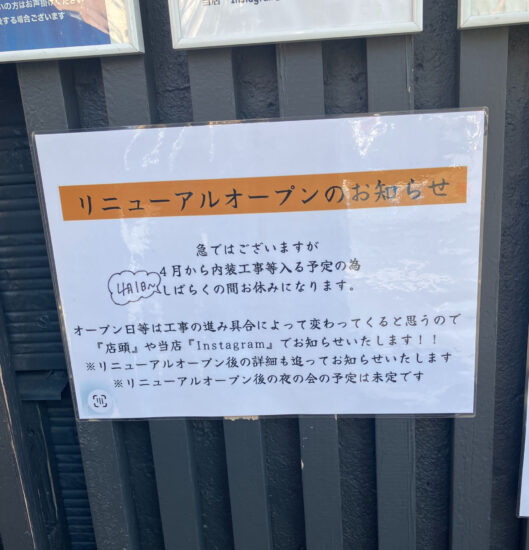 いの方はお声掛けください
する場合ございます
当店 Instagram
リニューアルオープンのお知らせ
急ではございますが
4月から内装工事等入る予定の為
4月1日〜
しばらくの間お休みになります。
オープン日等は工事の進み具合によって変わってくると思うので
『店頭』や当店『Instagram』でお知らせいたします！！
※リニューアルオープン後の詳細も追ってお知らせいたします
※リニューアルオープン後の夜の会の予定は未定です